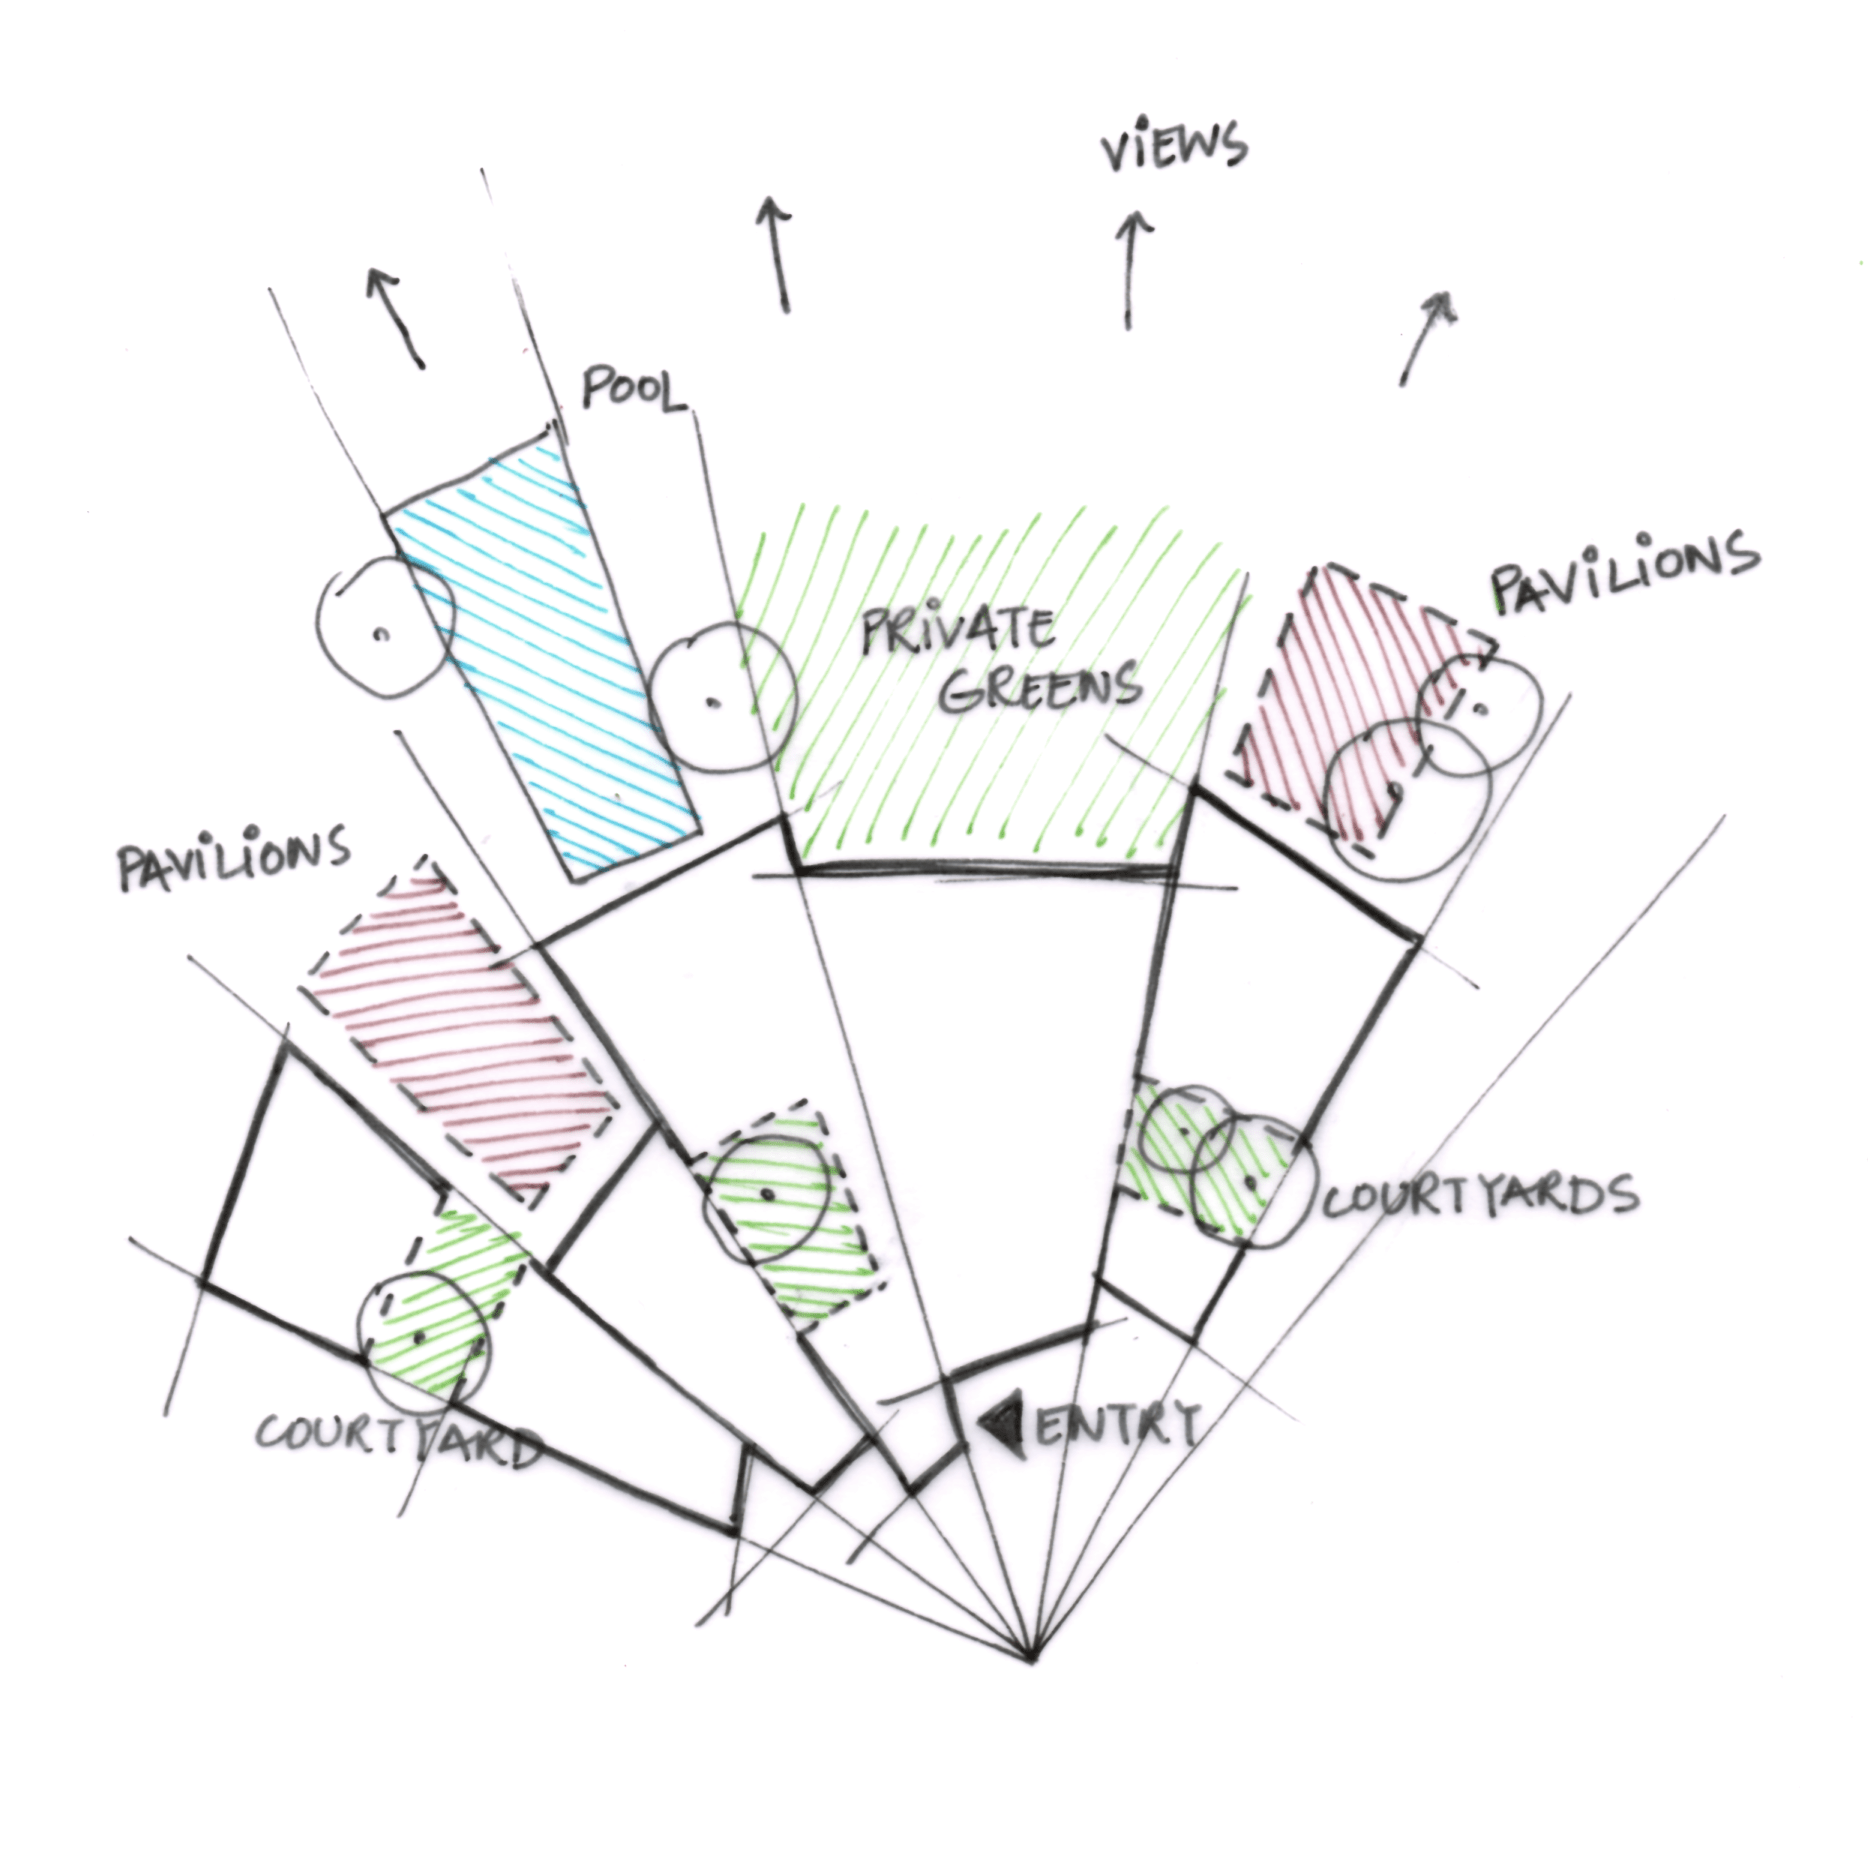 ViEWS
POOL
PRiVATE
GREENS
PAViLiONS
PAViLiONS
COURTYARDS
COURTYARD
ENTRY